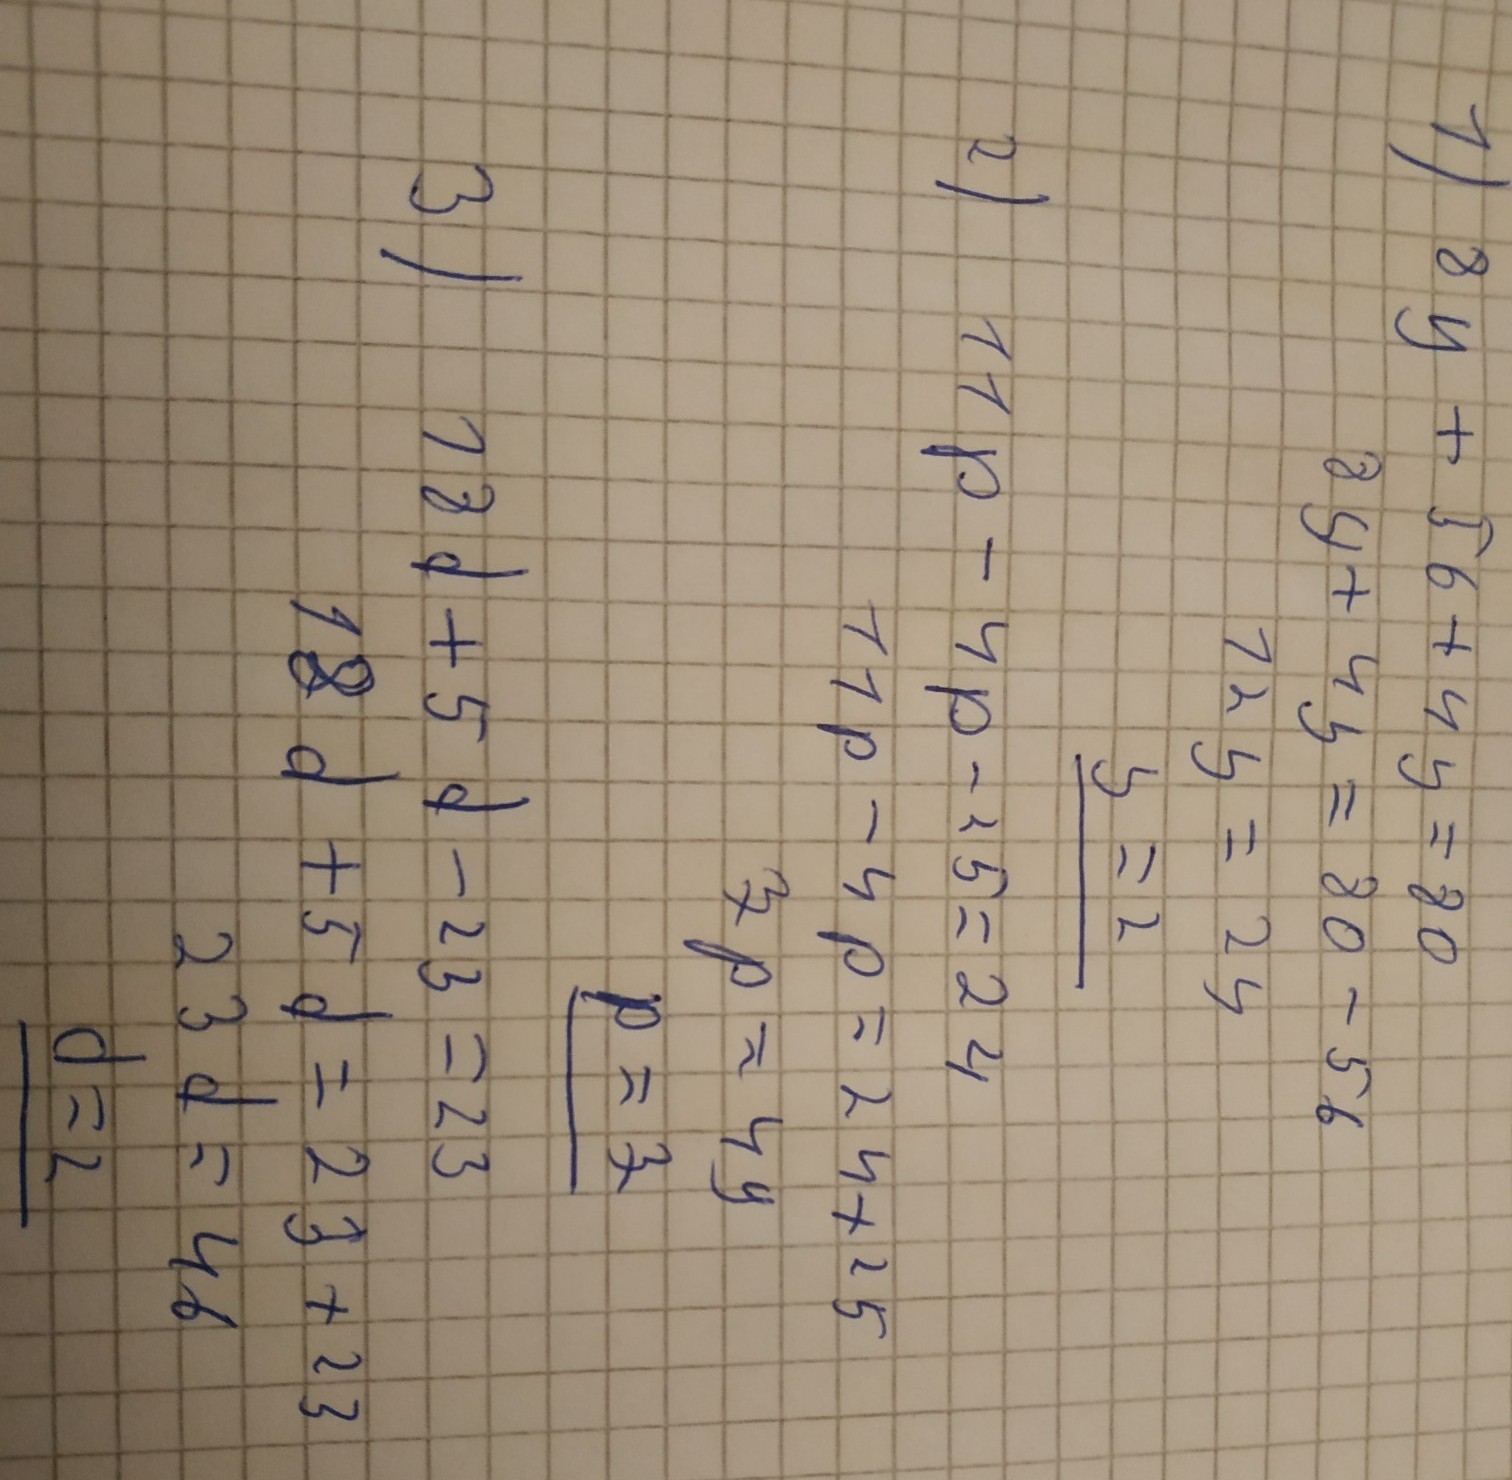 1) 8y + 56 + 4y = 80
8y + 4y = 80 - 56
12y = 24
y = 2
2) 11p - 4p - 25 = 24
11p - 4p = 24 + 25
7p = 49
p = 7
3) 18d + 5d - 23 = 23
18d + 5d = 23 + 23
23d = 46
d = 2